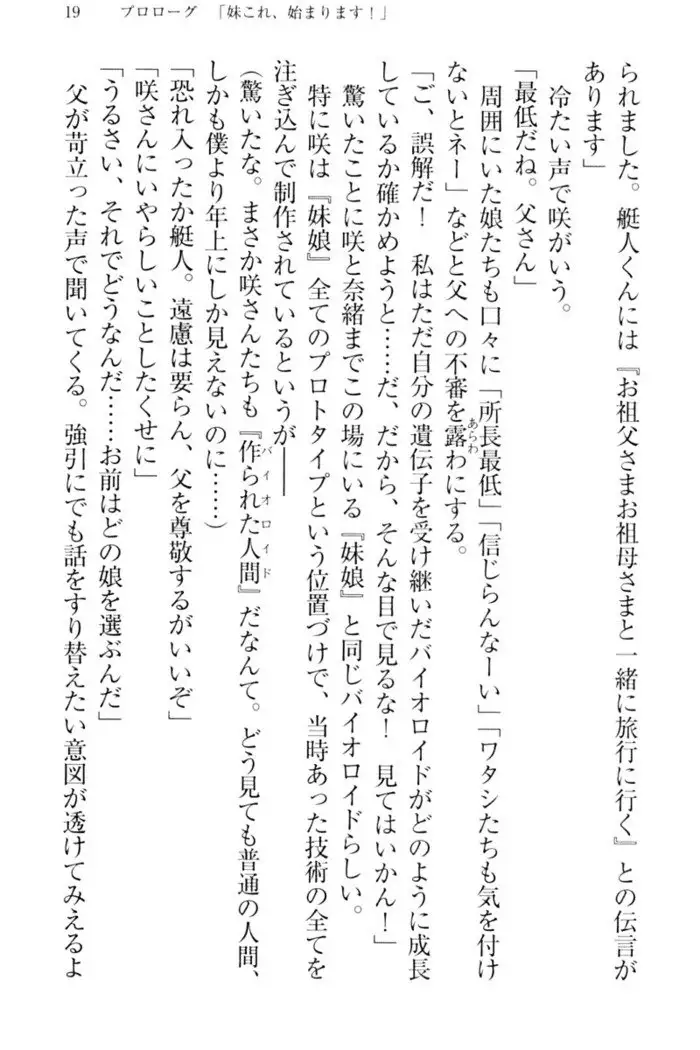 19　プロローグ　「妹これ、始まります！」
られました。艇人くんには『お祖父さまお祖母さまと一緒に旅行に行く』との伝言が
あります」
　冷たい声で咲がいう。
「最低だね。父さん」
　周囲にいた娘たちも口々に「所長最低」「信じらんなーい」「ワタシたちも気を付け
ないとネー」などと父への不審を露わにする。
「ご、誤解だ！　私はただ自分の遺伝子を受け継いだバイオロイドがどのように成長
しているか確かめようと……だ、だから、そんな目で見るな！　見てはいかん！」
　驚いたことに咲と奈緒までこの場にいる『妹娘』と同じバイオロイドらしい。
　特に咲は『妹娘』全てのプロトタイプという位置づけで、当時あった技術の全てを
注ぎ込んで制作されているというが――
（驚いたな。まさか咲さんたちも『作られた人間』だなんて。どう見ても普通の人間、
しかも僕より年上にしか見えないのに……）
「恐れ入ったか艇人。遠慮は要らん、父を尊敬するがいいぞ」
「咲さんにいやらしいことしたくせに」
「うるさい、それでどうなんだ……お前はどの娘を選ぶんだ」
　父が苛立った声で聞いてくる。強引にでも話をすり替えたい意図が透けてみえるよ
あらわ
バイオロイド